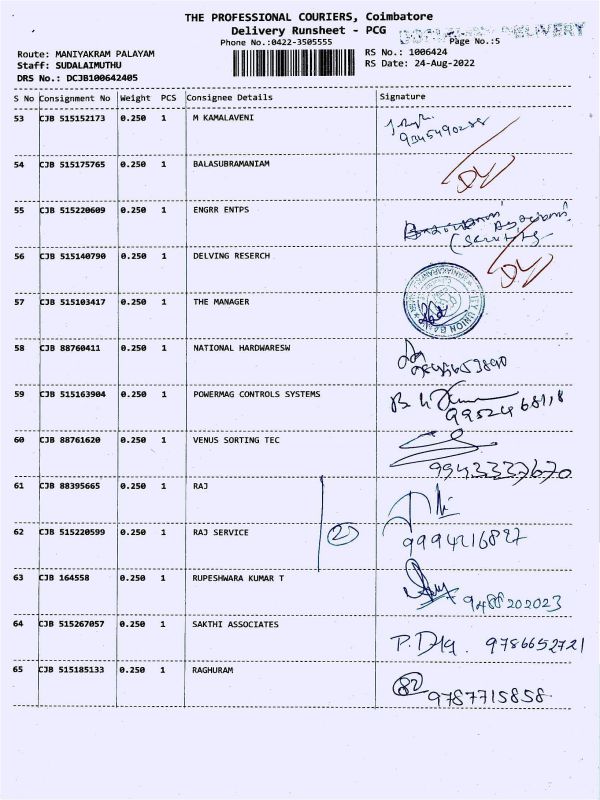 THE PROFESSIONAL COURIERS, Coimbatore
Delivery Runsheet - PCG
Phone No.:0422-3505555
DELIVERY
Page No.:5
Route: MANIYAKRAM PALAYAM
RS No.: 1006424
Staff: SUDALAIMUTHU
RS Date: 24-Aug-2022
DRS No.: DCJB100642405
S No Consignment No Weight PCS Consignee Details Signature
53 CJB 515152173 0.250 1 M KAMALAVENI
54 CJB 515175765 0.250 1 BALASUBRAMANIAM
55 CJB 515220609 0.250 1 ENGRR ENTPS
56 CJB 515140790 0.250 1 DELVING RESERCH
57 CJB 515103417 0.250 1 THE MANAGER
58 CJB 88760411 0.250 1 NATIONAL HARDWARESW
59 CJB 515163904 0.250 1 POWERMAG CONTROLS SYSTEMS
60 CJB 88761620 0.250 1 VENUS SORTING TEC
9943337670
61 CJB 88395665 0.250 1 RAJ
62 CJB 515220599 0.250 1 RAJ SERVICE
2
9994216827
63 CJB 164558 0.250 1 RUPESHWARA KUMAR T
64 CJB 515267057 0.250 1 SAKTHI ASSOCIATES
9786652721
65 CJB 515185133 0.250 1 RAGHURAM
82
9787715858